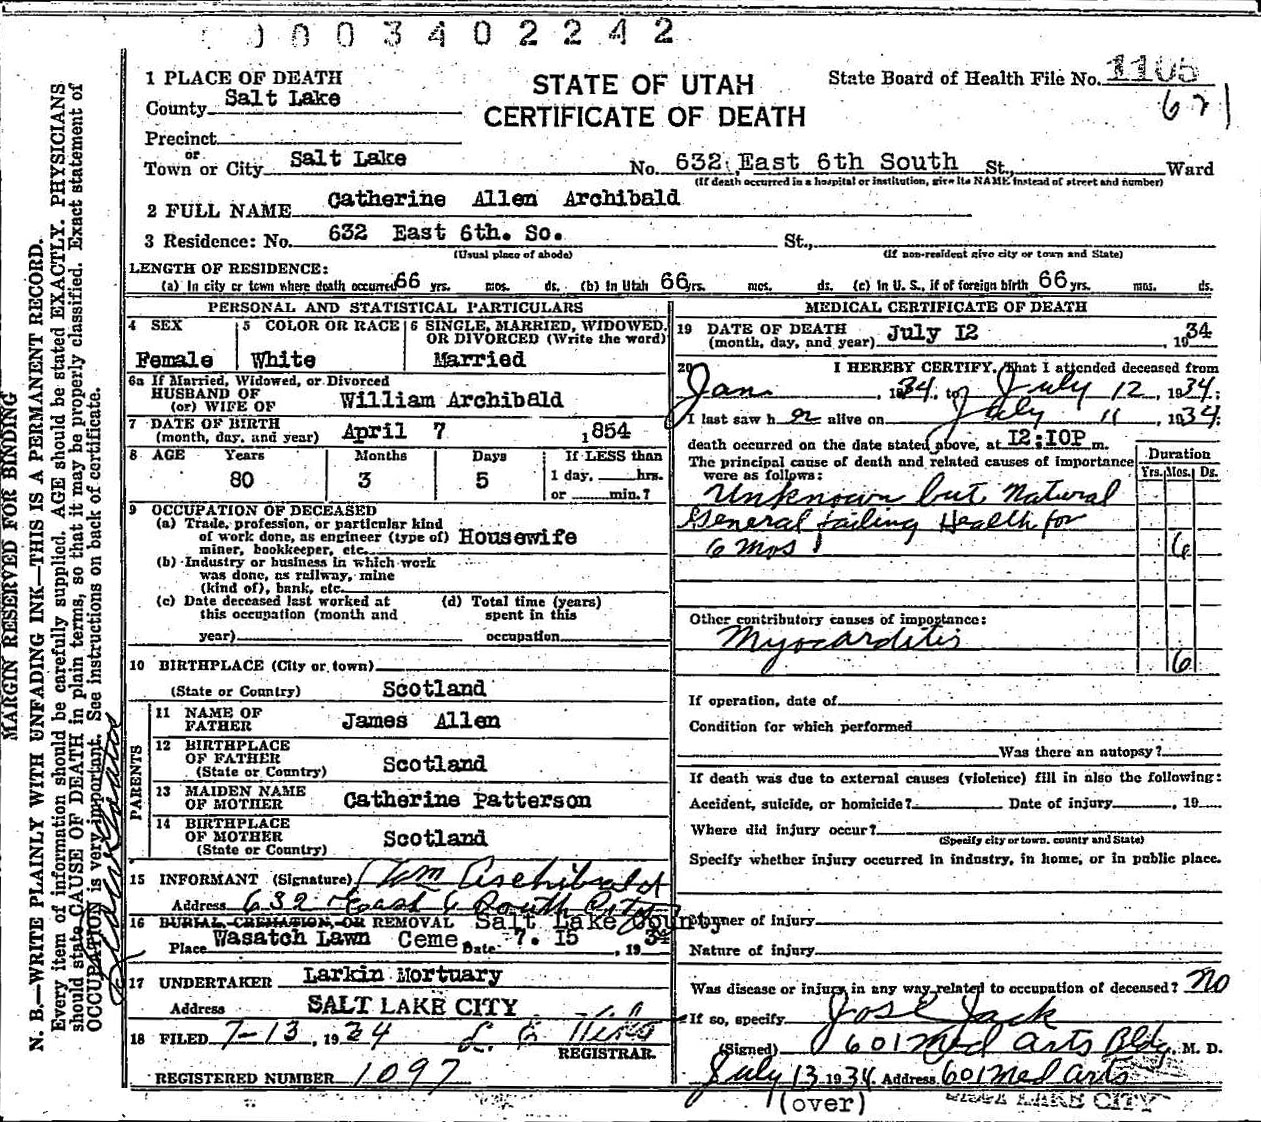 0003402242
1 PLACE OF DEATH
County Salt Lake
STATE OF UTAH
CERTIFICATE OF DEATH
State Board of Health File No. 1105
67
Precinct
or
Town or City Salt Lake No. 632 East 6th South St., Ward
(If death occurred in a hospital or institution, give its NAME instead of street and number)
2 FULL NAME Catherine Allen Archibald
3 Residence: No. 632 East 6th. So. St.,
(Usual place of abode) (If non-resident give city or town and State)
LENGTH OF RESIDENCE:
(a) In city or town where death occurred 66 yrs. mos. ds. (b) In Utah 66 yrs. mos. ds. (c) In U. S., if of foreign birth 66 yrs. mos. ds.
PERSONAL AND STATISTICAL PARTICULARS
4 SEX
Female
5 COLOR OR RACE
White
6 SINGLE, MARRIED, WIDOWED,
OR DIVORCED (Write the word)
Married
6a If Married, Widowed, or Divorced
HUSBAND OF
(or) WIFE OF William Archibald
7 DATE OF BIRTH
(month, day, and year) April 7 1854
8 AGE Years Months Days If LESS than
80 3 5 1 day, hrs.
or min.?
9 OCCUPATION OF DECEASED
(a) Trade, profession, or particular kind
of work done, as engineer (type of) Housewife
miner, bookkeeper, etc.
(b) Industry or business in which work
was done, as railway, mine
(kind of), bank, etc.
(c) Date deceased last worked at
this occupation (month and
year)
(d) Total time (years)
spent in this
occupation
10 BIRTHPLACE (City or town)
(State or Country) Scotland
PARENTS
11 NAME OF
FATHER James Allen
12 BIRTHPLACE
OF FATHER
(State or Country) Scotland
13 MAIDEN NAME
OF MOTHER Catherine Patterson
14 BIRTHPLACE
OF MOTHER
(State or Country) Scotland
15 INFORMANT (Signature) Wm Archibald
Address 632 East 6 South City
16 BURIAL, CREMATION, OR REMOVAL Salt Lake County
Place Wasatch Lawn Ceme. Date 7. 15, 1934
17 UNDERTAKER Larkin Mortuary
Address SALT LAKE CITY
18 FILED 7-13, 1934
REGISTRAR.
REGISTERED NUMBER 1097
MEDICAL CERTIFICATE OF DEATH
19 DATE OF DEATH
(month, day, and year) July 12, 1934
20 I HEREBY CERTIFY, That I attended deceased from
Jan, 1934, to July 12, 1934;
I last saw her alive on July 11, 1934;
death occurred on the date stated above, at 12:10P m.
The principal cause of death and related causes of importance
were as follows:
Duration
Yrs. Mos. Ds.
Unknown but Natural
General failing Health for
6 mos 6
Other contributory causes of importance:
Myocarditis
6
If operation, date of
Condition for which performed
Was there an autopsy?
If death was due to external causes (violence) fill in also the following:
Accident, suicide, or homicide? Date of injury, 19
Where did injury occur?
(Specify city or town, county and State)
Specify whether injury occurred in industry, in home, or in public place.
Manner of injury
Nature of injury
Was disease or injury in any way related to occupation of deceased? No
If so, specify
(Signed) Jos E Jack
601 Med Arts Bldg., M. D.
July 13 1934. Address 601 Med arts
SALT LAKE CITY
(over)
MARGIN RESERVED FOR BINDING
N. B.—WRITE PLAINLY WITH UNFADING INK—THIS IS A PERMANENT RECORD.
Every item of information should be carefully supplied. AGE should be stated EXACTLY. PHYSICIANS
should state CAUSE OF DEATH in plain terms, so that it may be properly classified. Exact statement of
OCCUPATION is very important. See instructions on back of certificate.